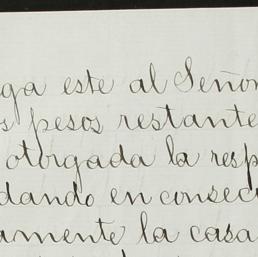 ga este al Señor
s pesos restante
otorgada la resp
dando en consecu
amente la casa